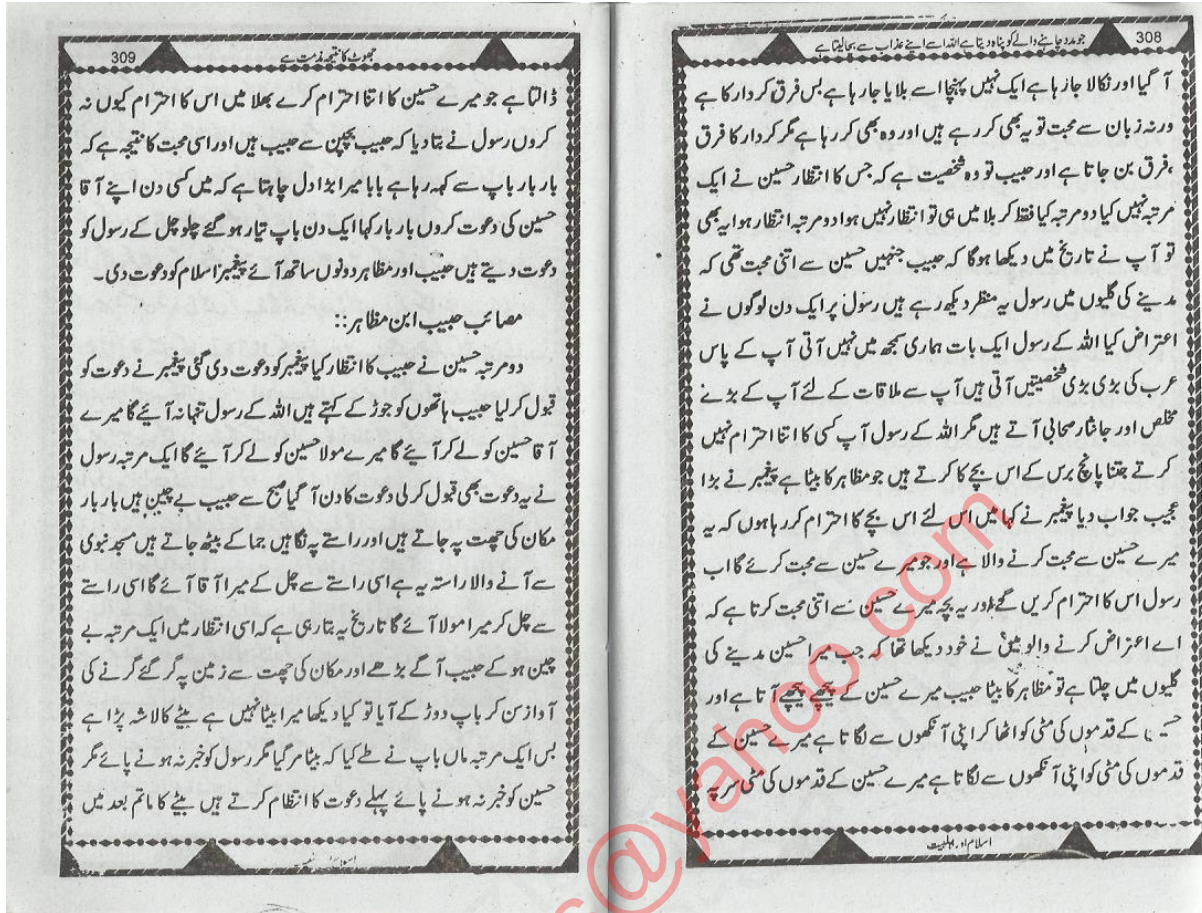 308
جو مدد چاہنے والے کو پناہ دیتا ہے اللہ اسے اپنے عذاب سے بچا لیتا ہے
آ گیا اور نکالا جا رہا ہے ایک نہیں پہنچا اسے بلایا جا رہا ہے بس فرق کردار کا ہے
ورنہ زبان سے محبت تو یہ بھی کر رہے ہیں اور وہ بھی کر رہا ہے مگر کردار کا فرق
،فرق بن جاتا ہے اور حبیب تو وہ شخصیت ہے کہ جس کا انتظار حسین نے ایک
مرتبہ نہیں کیا دو مرتبہ کیا فقط کربلا میں ہی تو انتظار نہیں ہوا دو مرتبہ انتظار ہوا یہ بھی
تو آپ نے تاریخ میں دیکھا ہوگا کہ حبیب جنہیں حسین سے اتنی محبت تھی کہ
مدینے کی گلیوں میں رسول یہ منظر دیکھ رہے ہیں رسول پر ایک دن لوگوں نے
اعتراض کیا اللہ کے رسول ایک بات ہماری سمجھ میں نہیں آتی آپ کے پاس
عرب کی بڑی بڑی شخصیتیں آتی ہیں آپ سے ملاقات کے لئے آپ کے بڑے
مخلص اور جانثار صحابی آتے ہیں مگر اللہ کے رسول آپ کسی کا اتنا احترام نہیں
کرتے جتنا پانچ برس کے اس بچے کا کرتے ہیں جو مظاہر کا بیٹا ہے پیغمبر نے بڑا
عجیب جواب دیا پیغمبر نے کہا میں اس لئے اس بچے کا احترام کر رہا ہوں کہ یہ
میرے حسین سے محبت کرنے والا ہے اور جو میرے حسین سے محبت کرے گا اب
رسول اس کا احترام کریں گے اور یہ بچہ میرے حسین سے اتنی محبت کرتا ہے کہ
اے اعتراض کرنے والو میں نے خود دیکھا تھا کہ جب میرا حسین مدینے کی
گلیوں میں چلتا ہے تو مظاہر کا بیٹا حبیب میرے حسین کے پیچھے پیچھے آتا ہے اور
کے قدموں کی مٹی کو اٹھا کر اپنی آنکھوں سے لگاتا ہے میرے حسین کے
قدموں کی مٹی کو اپنی آنکھوں سے لگاتا ہے میرے حسین کے قدموں کی مٹی سر پہ
اسلام اور اہلبیت
309
جھوٹ کا نتیجہ مذمت ہے
ڈالتا ہے جو میرے حسین کا اتنا احترام کرے بھلا میں اس کا احترام کیوں نہ
کروں رسول نے بتا دیا کہ حبیب بچپن سے حبیب ہیں اور اسی محبت کا نتیجہ ہے کہ
بار بار باپ سے کہہ رہا ہے بابا میرا بڑا دل چاہتا ہے کہ میں کسی دن اپنے آقا
حسین کی دعوت کروں بار بار کہا ایک دن باپ تیار ہو گئے چلو چل کے رسول کو
دعوت دیتے ہیں حبیب اور مظاہر دونوں ساتھ آئے پیغمبر اسلام کو دعوت دی۔
مصائب حبیب ابن مظاہر::
دو مرتبہ حسین نے حبیب کا انتظار کیا پیغمبر کو دعوت دی گئی پیغمبر نے دعوت کو
قبول کر لیا حبیب ہاتھوں کو جوڑ کے کہتے ہیں اللہ کے رسول تنہا نہ آئیے گا میرے
آقا حسین کو لے کر آئیے گا میرے مولا حسین کو لے کر آئیے گا ایک مرتبہ رسول
نے یہ دعوت بھی قبول کر لی دعوت کا دن آ گیا صبح سے حبیب بے چین ہیں بار بار
مکان کی چھت پہ جاتے ہیں اور راستے پہ نگاہیں جما کے بیٹھ جاتے ہیں مسجد نبوی
سے آنے والا راستہ یہ ہے اسی راستے سے چل کے میرا آقا آئے گا اسی راستے
سے چل کر میرا مولا آئے گا تاریخ یہ بتا رہی ہے کہ اسی انتظار میں ایک مرتبہ بے
چین ہو کے حبیب آگے بڑھے اور مکان کی چھت سے زمین پہ گر گئے گرنے کی
آواز سن کر باپ دوڑ کے آیا تو کیا دیکھا میرا بیٹا نہیں ہے بیٹے کا لاشہ پڑا ہے
بس ایک مرتبہ ماں باپ نے طے کیا کہ بیٹا مر گیا مگر رسول کو خبر نہ ہونے پائے مگر
حسین کو خبر نہ ہونے پائے پہلے دعوت کا انتظام کرتے ہیں بیٹے کا ماتم بعد میں
@yahoo.com